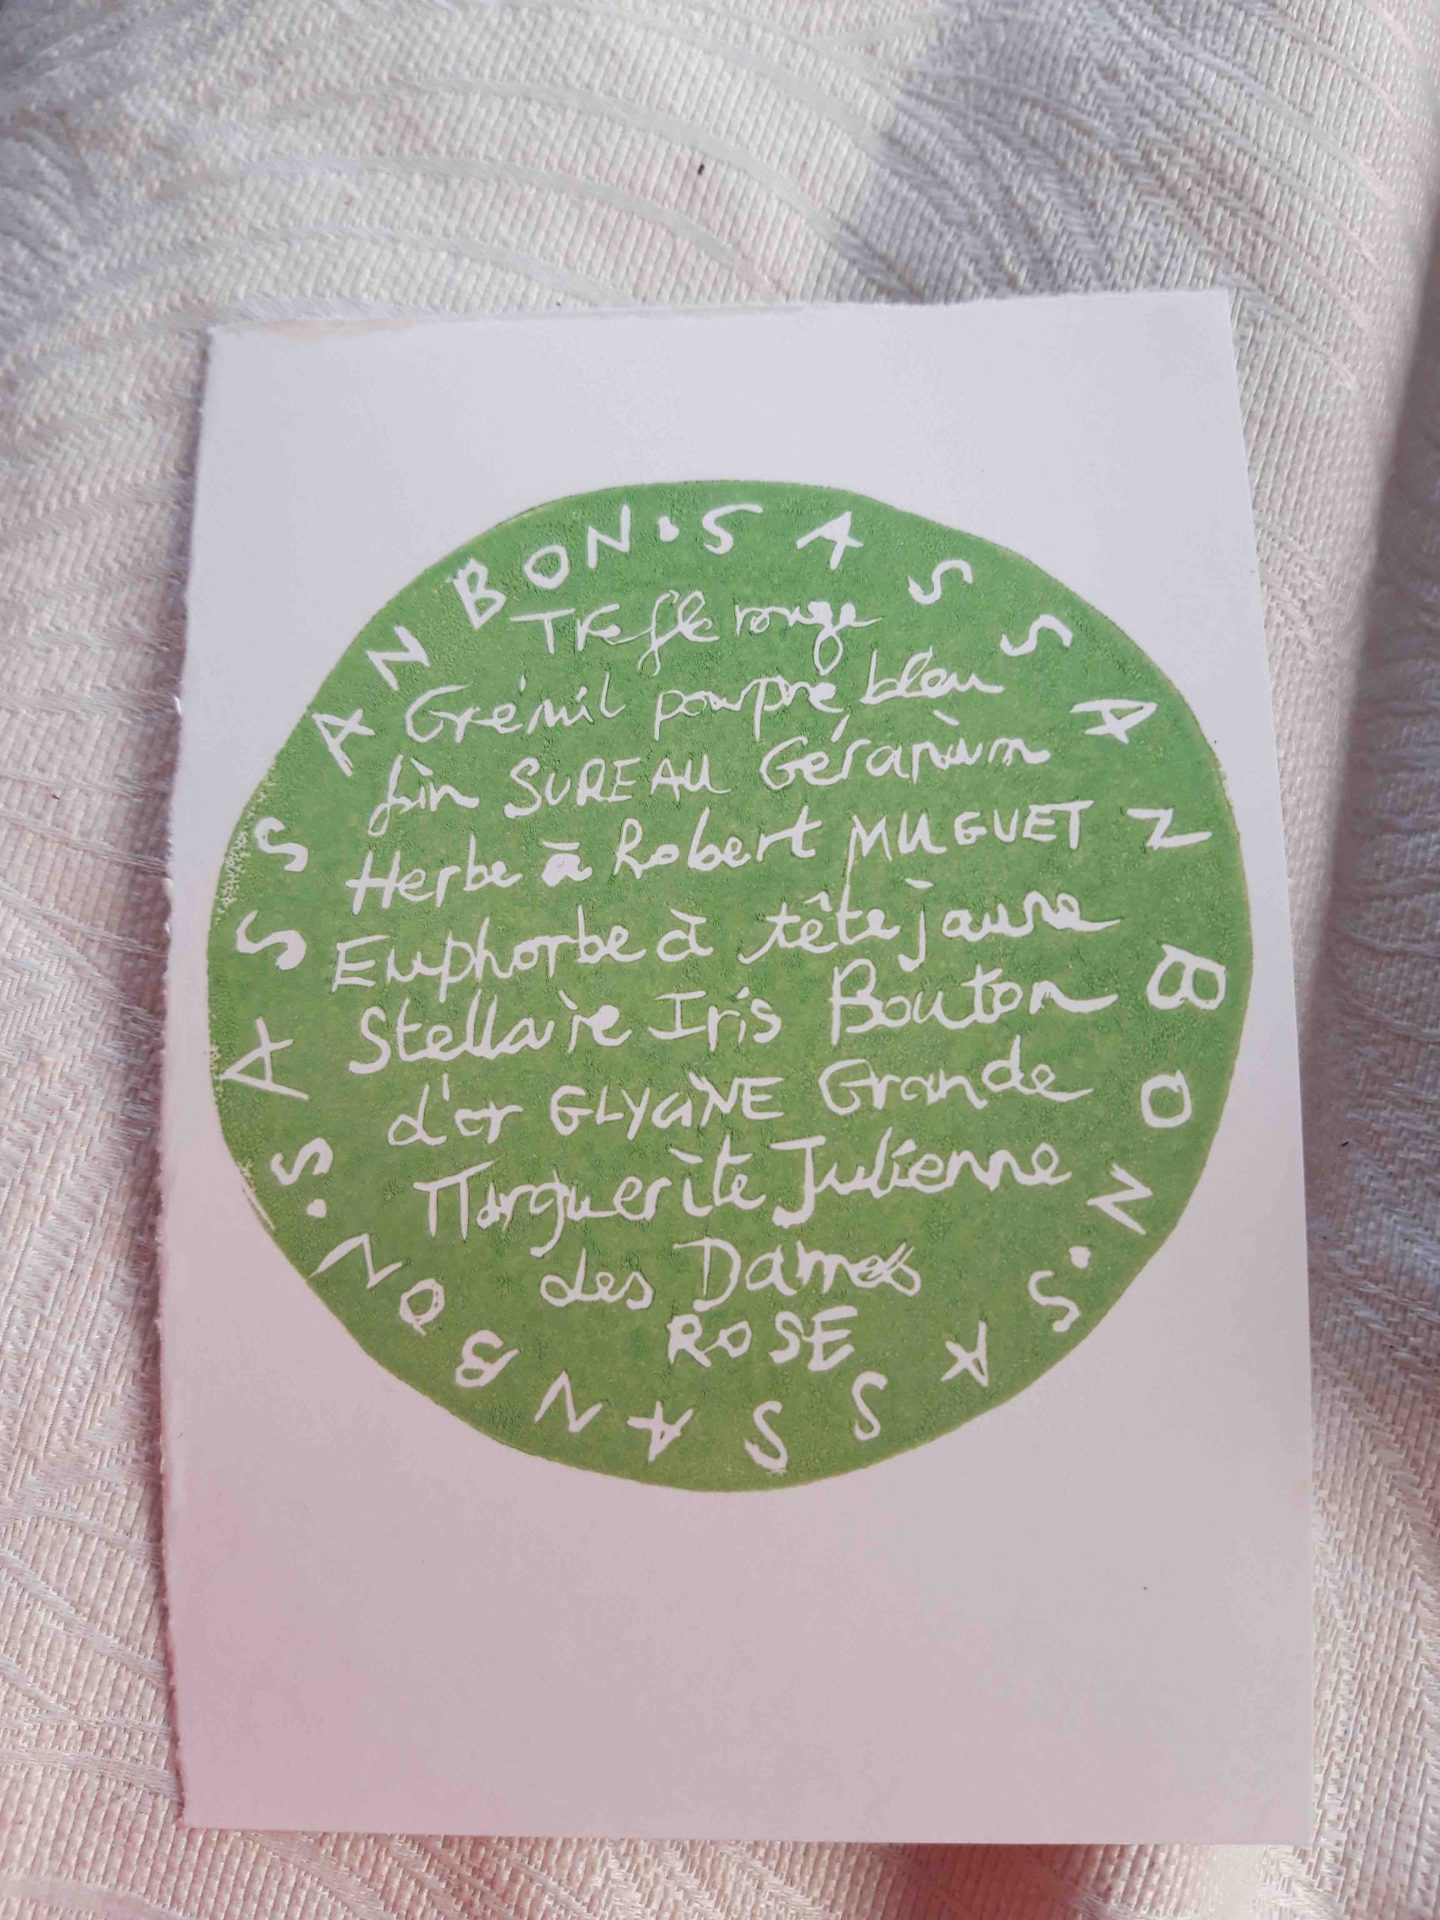 SASSANBON·SASSANBON·SASSANBON·
Trefle rouge
Grémil pourpré bleu
fin SUREAU Géranium
Herbe à Robert MUGUET
Euphorbe à tête jaune
Stellaire Iris Bouton
d'or GLYCINE Grande
Marguerite Julienne
des Dames
ROSE